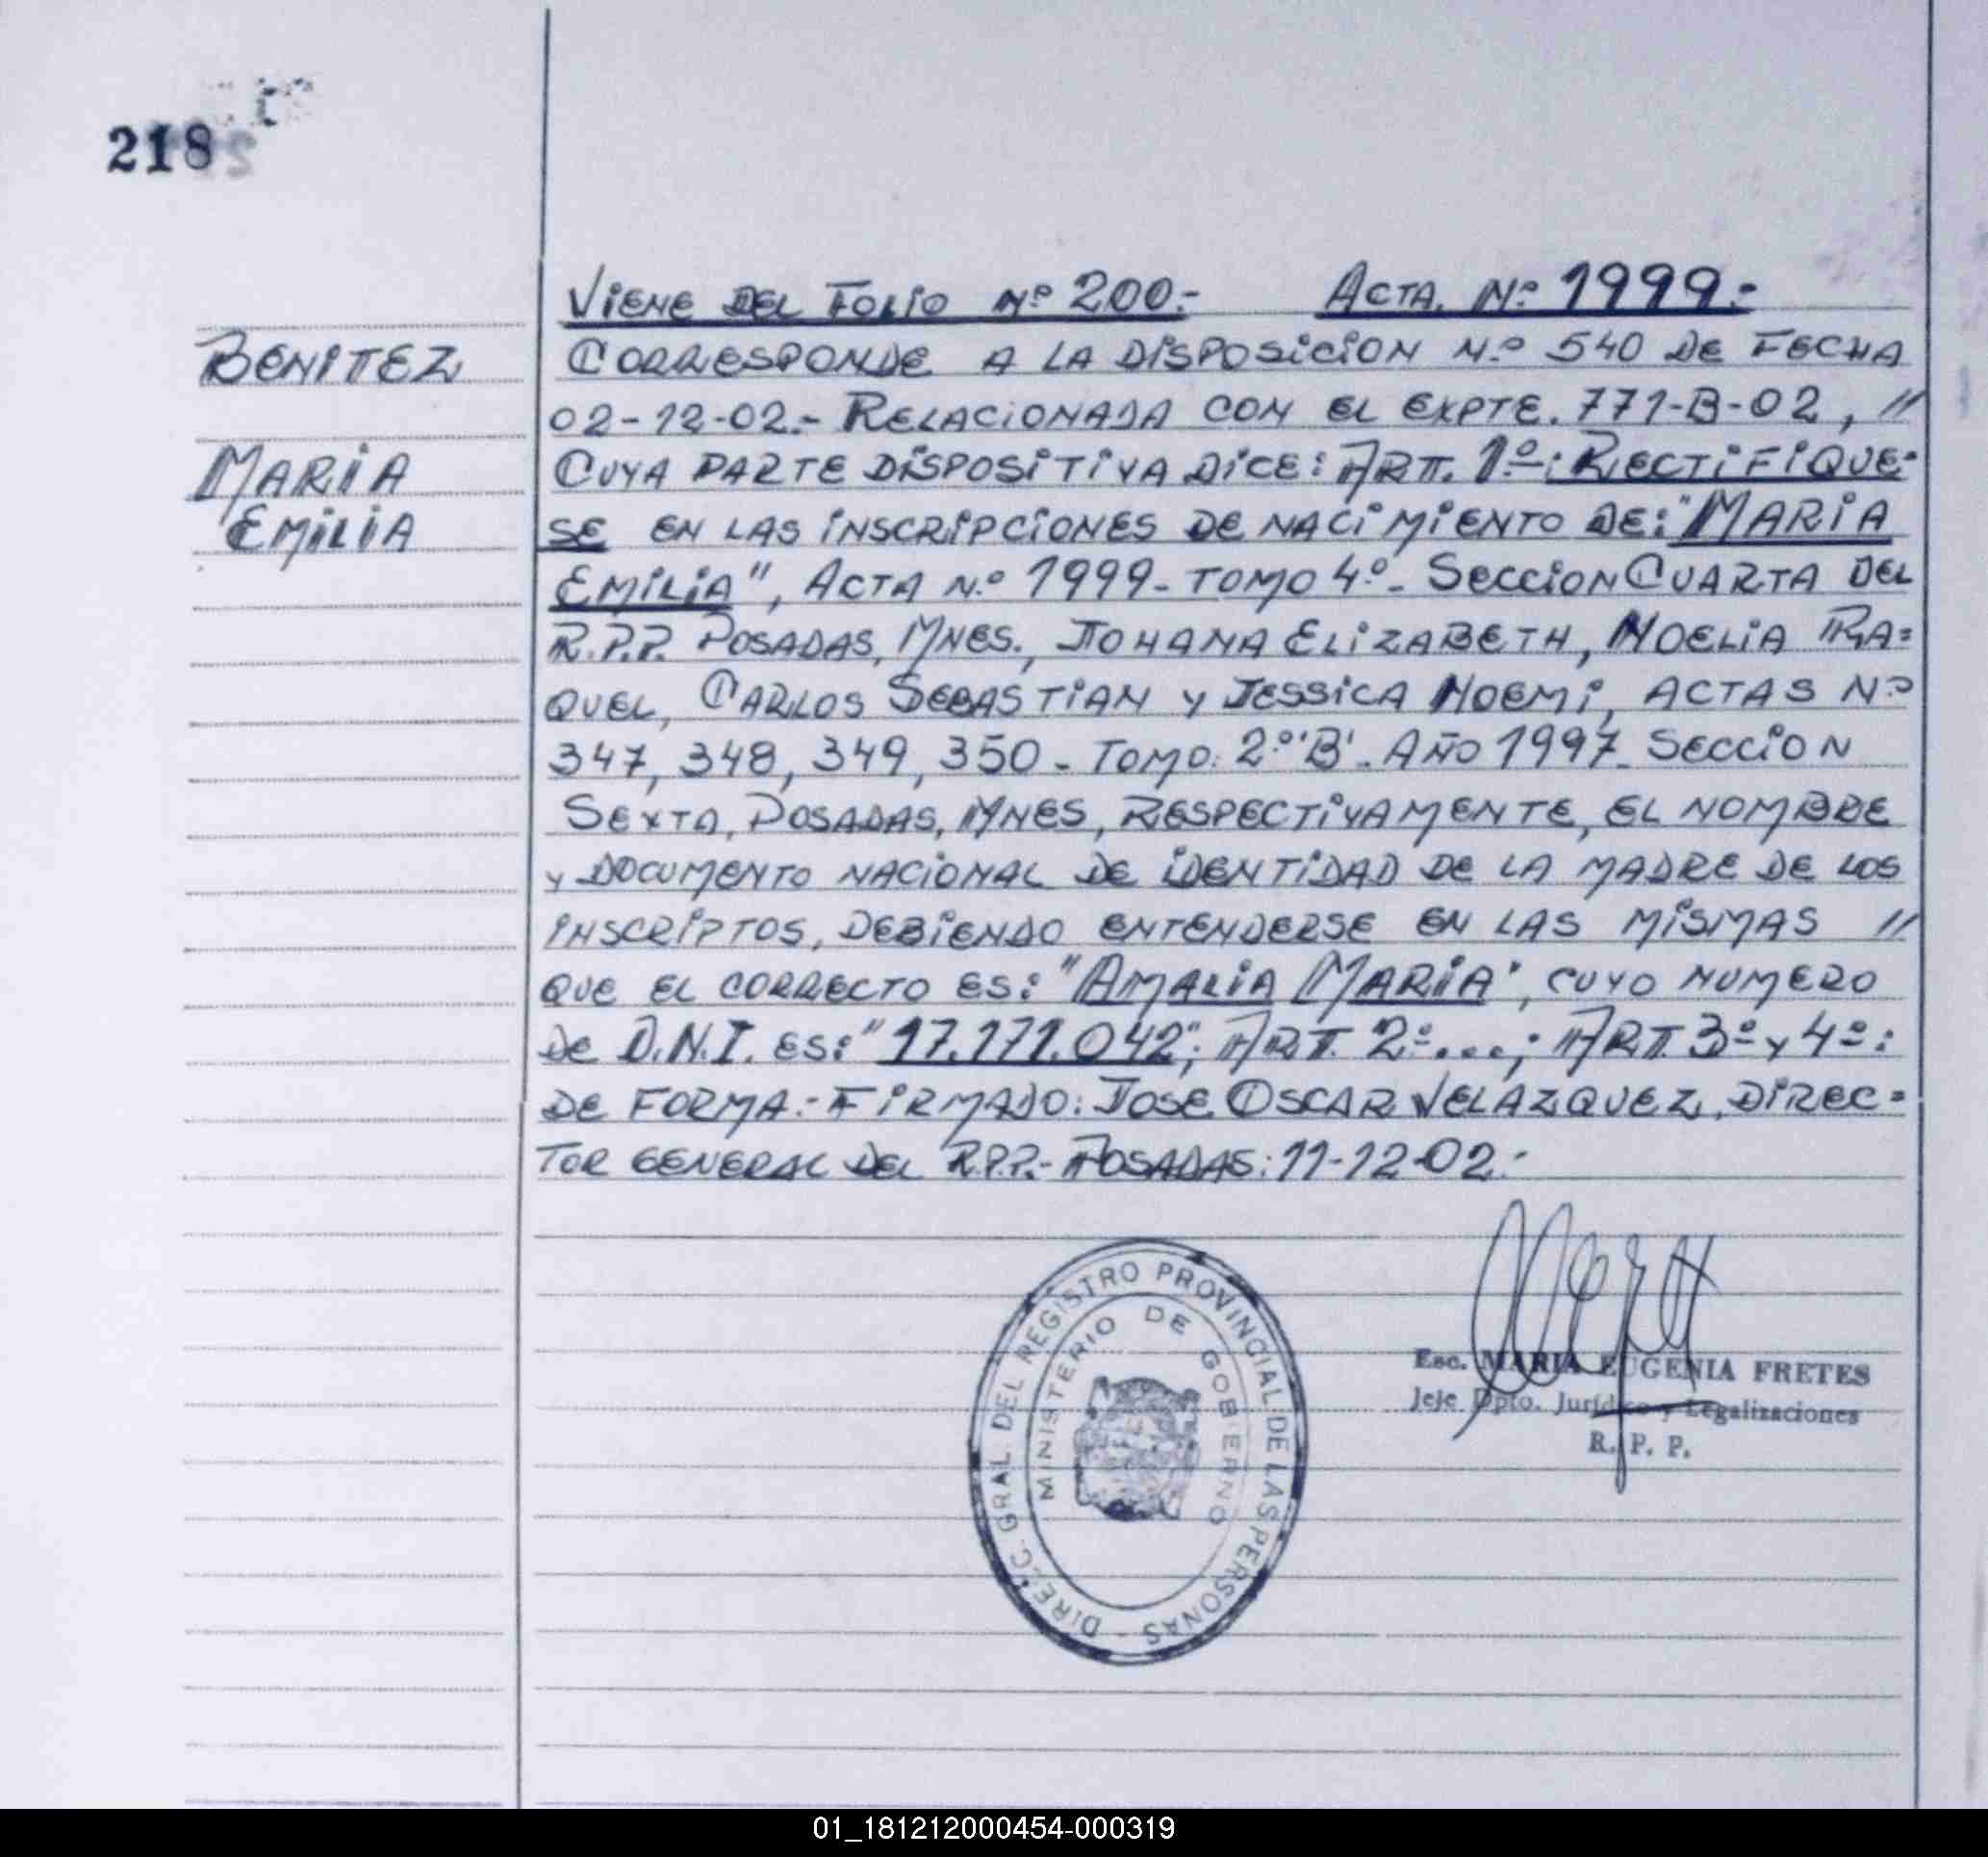 218
VIENE DEL FOLIO Nº 200.- ACTA. Nº 1999.-
BENITEZ
MARIA
EMILIA
CORRESPONDE A LA DISPOSICION N.º 540 DE FECHA
02-12-02.- RELACIONADA CON EL EXPTE. 771-B-02, //
CUYA PARTE DISPOSITIVA DICE: ART. 1º: RECTIFIQUE-
SE EN LAS INSCRIPCIONES DE NACIMIENTO DE: "MARIA
EMILIA", ACTA N.º 1999- TOMO 4.º- SECCION CUARTA DEL
R.P.P. POSADAS, MNES., JOHANA ELIZABETH, NOELIA RA=
QUEL, CARLOS SEBASTIAN Y JESSICA NOEMI, ACTAS Nº
347, 348, 349, 350 - TOMO: 2.º'B'- AÑO 1997- SECCION
SEXTA, POSADAS, MNES, RESPECTIVAMENTE, EL NOMBRE
Y DOCUMENTO NACIONAL DE IDENTIDAD DE LA MADRE DE LOS
INSCRIPTOS, DEBIENDO ENTENDERSE EN LAS MISMAS //
QUE EL CORRECTO ES: "AMALIA MARIA", CUYO NUMERO
DE D.N.I. ES: "17.171.042"; ART. 2º...; ART. 3º Y 4º:
DE FORMA.- FIRMADO: JOSE OSCAR VELAZQUEZ, DIREC=
TOR GENERAL DEL R.P.P.- POSADAS: 11-12-02.-
DIREC. GRAL. DEL REGISTRO PROVINCIAL DE LAS PERSONAS -
MINISTERIO DE GOBIERNO
Esc. MARIA EUGENIA FRETES
Jefe Dpto. Jurídico y Legalizaciones
R. P. P.
01_181212000454-000319